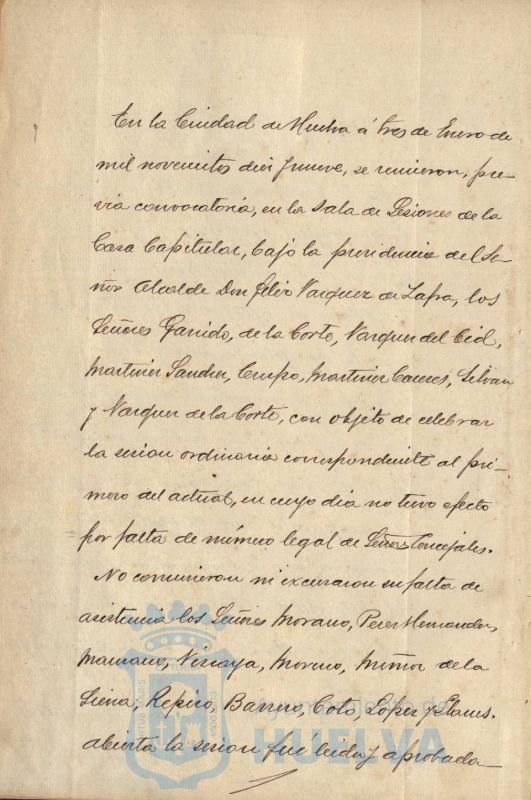 En la Ciudad de Huelva á tres de Enero de
mil novecientos diez y nueve, se reunieron, pre-
via convocatoria, en la Sala de Sesiones de la
Casa Capitular, bajo la presidencia del Se-
ñor Alcalde Don Felix Vazquez de Zafra, los
Señores Garrido, de la Corte, Vazquez del Cid,
Martinez Sanchez, Crespo, Martinez Caceres, Silvan
y Vazquez de la Corte, con objeto de celebrar
la sesion ordinaria correspondiente al pri-
mero del actual, en cuyo dia no tuvo efecto
por falta de número legal de Señores Concejales.
No concurrieron ni excusaron su falta de
asistencia los Señores Morano, Perez Hernandez,
Mancano, Vizcaya, Moreno, Muñoz de la
Sierra, Repiso, Barrero, Coto, Lopez y
abierta la sesion fué leida y aprobada
Ayuntamiento de
HUELVA